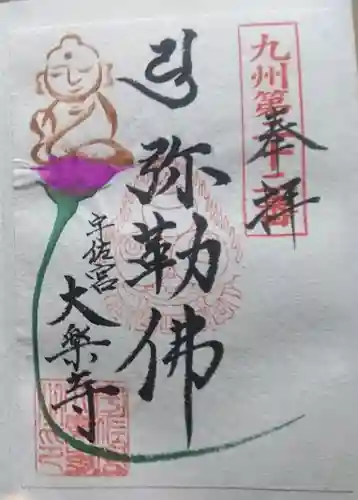 九州第十二番
奉拝
弥勒佛
宇佐宮
大楽寺